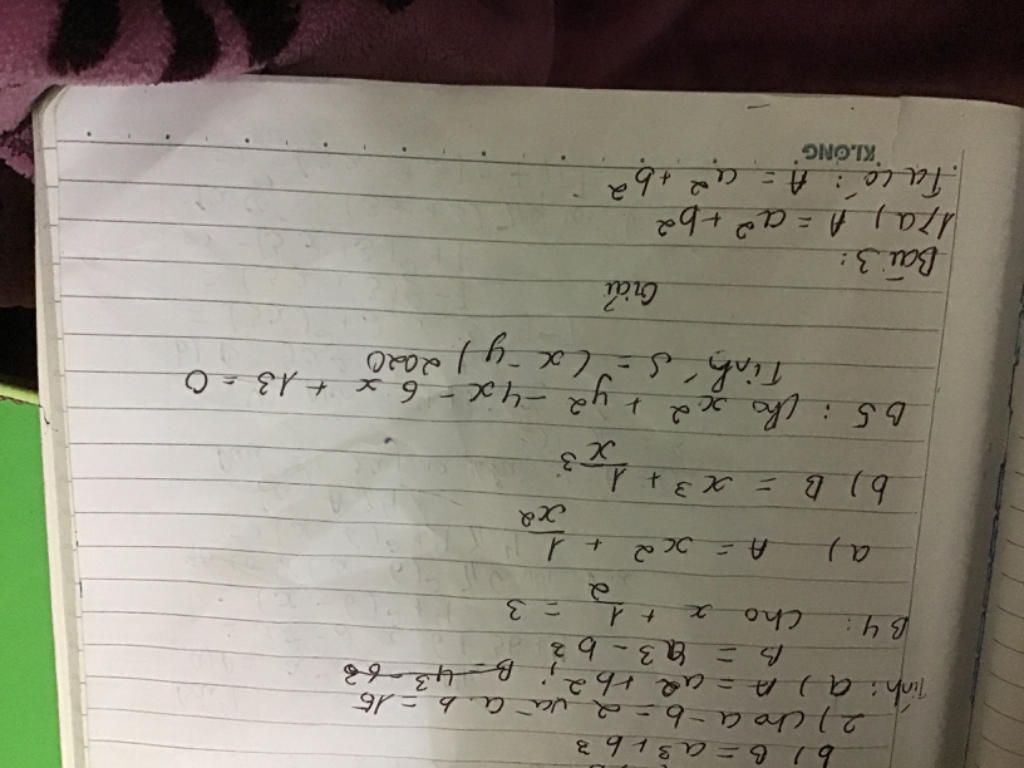 b) B = a3 + b3
2) Cho a - b = 2 và a.b = 15
Tính: a) A = a2 + b2; B = 43 - 63
B = a3 - b3
B4: Cho x + 1/2 = 3
a) A = x2 + 1/x2
b) B = x3 + 1/x3
B5: Cho x2 + y2 - 4x - 6x + 13 = 0
Tính S = (x - y) 2020
Giải
Bài 3:
1) a) A = a2 + b2
Ta có: A = a2 + b2
KLONG